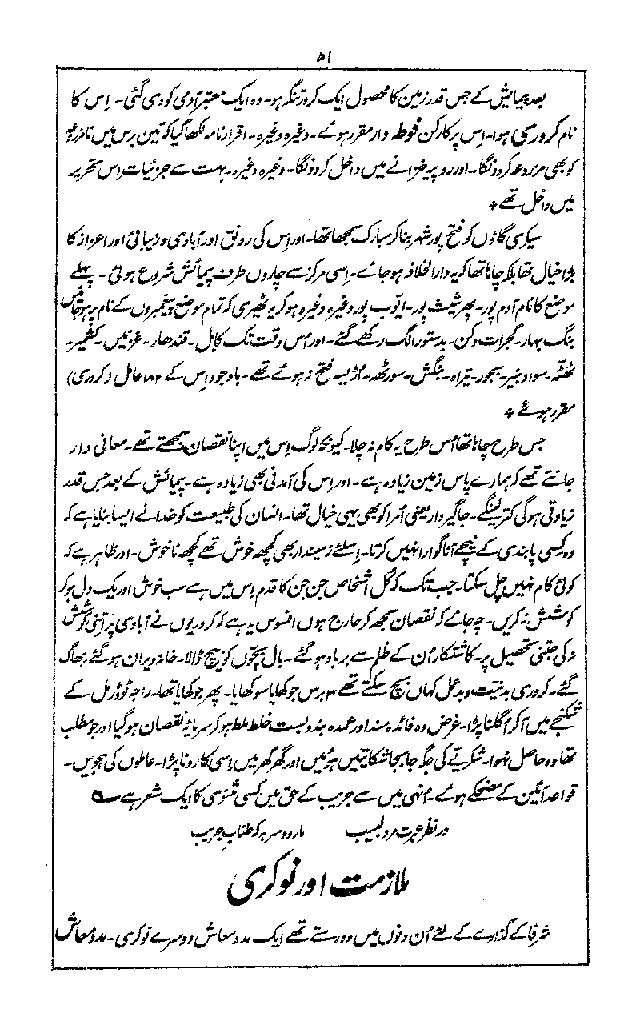 ۵۱
بعد پیمائش کے جس قدر زمین کا محصول ایک کروڑ تنگہ ہو۔ وہ ایک معتبر آدمی کو دی گئی۔ اس کا
نام کروری ہوا۔ اس پر کارکن فوطہ دار مقرر ہوئے۔ وغیرہ وغیرہ۔ اقرار نامہ لکھا گیا کہ تین برس میں نامزروعہ
کو بھی مزروعہ کردونگا۔ اور روپیہ خزانے میں داخل کردونگا۔ وغیرہ وغیرہ۔ بہت سے جزئیات اس تحریر
میں داخل تھے +
سیکری گاؤں کو فتح پور شہر بنا کر مبارک سمجھا تھا۔ اور اس کی رونق اور آبادی و زیبائی اور اعزاز کا
بڑا خیال تھا بلکہ چاہا تھا کہ یہ دارالخلافہ ہوجائے۔ اسی مرکز سے چاروں طرف پیمائش شروع ہوئی۔ پہلے
موضع کا نام آدم پور۔ پھر شیث پور۔ ایوب پور وغیرہ وغیرہ ہوکر یہ ٹھیری کہ تمام موضع پیغمبروں کے نام پر ہوجائیں
بنگ بہار۔ گجرات دکن۔ بدستور الگ رکھے گئے۔ اور اس وقت تک کابل۔ قندھار۔ غزنیں۔ کشمیر۔
ٹھٹہ۔ سواد بنیر۔ بجور۔ تیراہ۔ بنگش۔ سورٹھ۔ اڑیسہ فتح نہ ہوئے تھے۔ باوجود اس کے ۱۸۲ عامل (کروری)
مقرر ہوئے +
جس طرح چاہا تھا اس طرح یہ کام نہ چلا۔ کیونکہ لوگ اس میں اپنا نقصان سمجھتے تھے۔ معافی دار
جانتے تھے کہ ہمارے پاس زمین زیادہ ہے۔ اور اس کی آمدنی بھی زیادہ ہے۔ پیمائش کے بعد جس قدر
زیادتی ہوگی کتر لینگے۔ جاگیردار یعنی امرا کو بھی یہی خیال تھا۔ انسان کی طبیعت کو خدا نے ایسا بنایا ہے کہ
وہ کسی پابندی کے نیچے آنا گوارا نہیں کرتا۔ اسلئے زمیندار بھی کچھ خوش تھے کچھ ناخوش۔ اور ظاہر ہے کہ
کوئی کام نہیں چل سکتا۔ جب تک کہ کل اشخاص جن جن کا قدم اس میں ہے سب خوش اور یک دل ہوکر
کوشش نہ کریں۔ چہ جائے کہ نقصان سمجھ کر حارج ہوں افسوس یہ ہے کہ کروریوں نے آبادی پر اتنی کوشش
نہ کی جتنی تحصیل پر۔ کاشتکار ان کے ظلم سے برباد ہوگئے۔ بال بچوں کو بیچ ڈالا۔ خانہ ویران ہوگئے بھاگ
گئے۔ کروری بدنیت و بدعمل کہاں بچ سکتے تھے ۳ برس جو کھایا سو کھایا۔ پھر جو کھایا تھا۔ راجہ ٹوڈرمل کے
شکنجے میں آکر اگلنا پڑا۔ غرض وہ فائدہ مند اور عمدہ بندوبست خلط ملط ہوکر سرمایۂ نقصان ہوگیا اور جو مطلب
تھا وہ حاصل نہوا۔ شکریے کی جگہ جابجا شکایتیں ہوئیں اور گھر گھر میں اسی کا رونا پڑا۔ عاملوں کی ہجویں۔
قواعد آئین کے مضحکے ہوئے۔ انہی میں سے جریب کے حق میں کسی مثنوی کا ایک شعر ہے ؎
در نظر عبرت مرد لبیب مار دو سر بہ کہ طناب جریب
ملازمت اور نوکری
شرفا کے گذارے کے لئے ان دنوں میں دو رستے تھے ایک مدد معاش دوسرے نوکری۔ مدد معاش